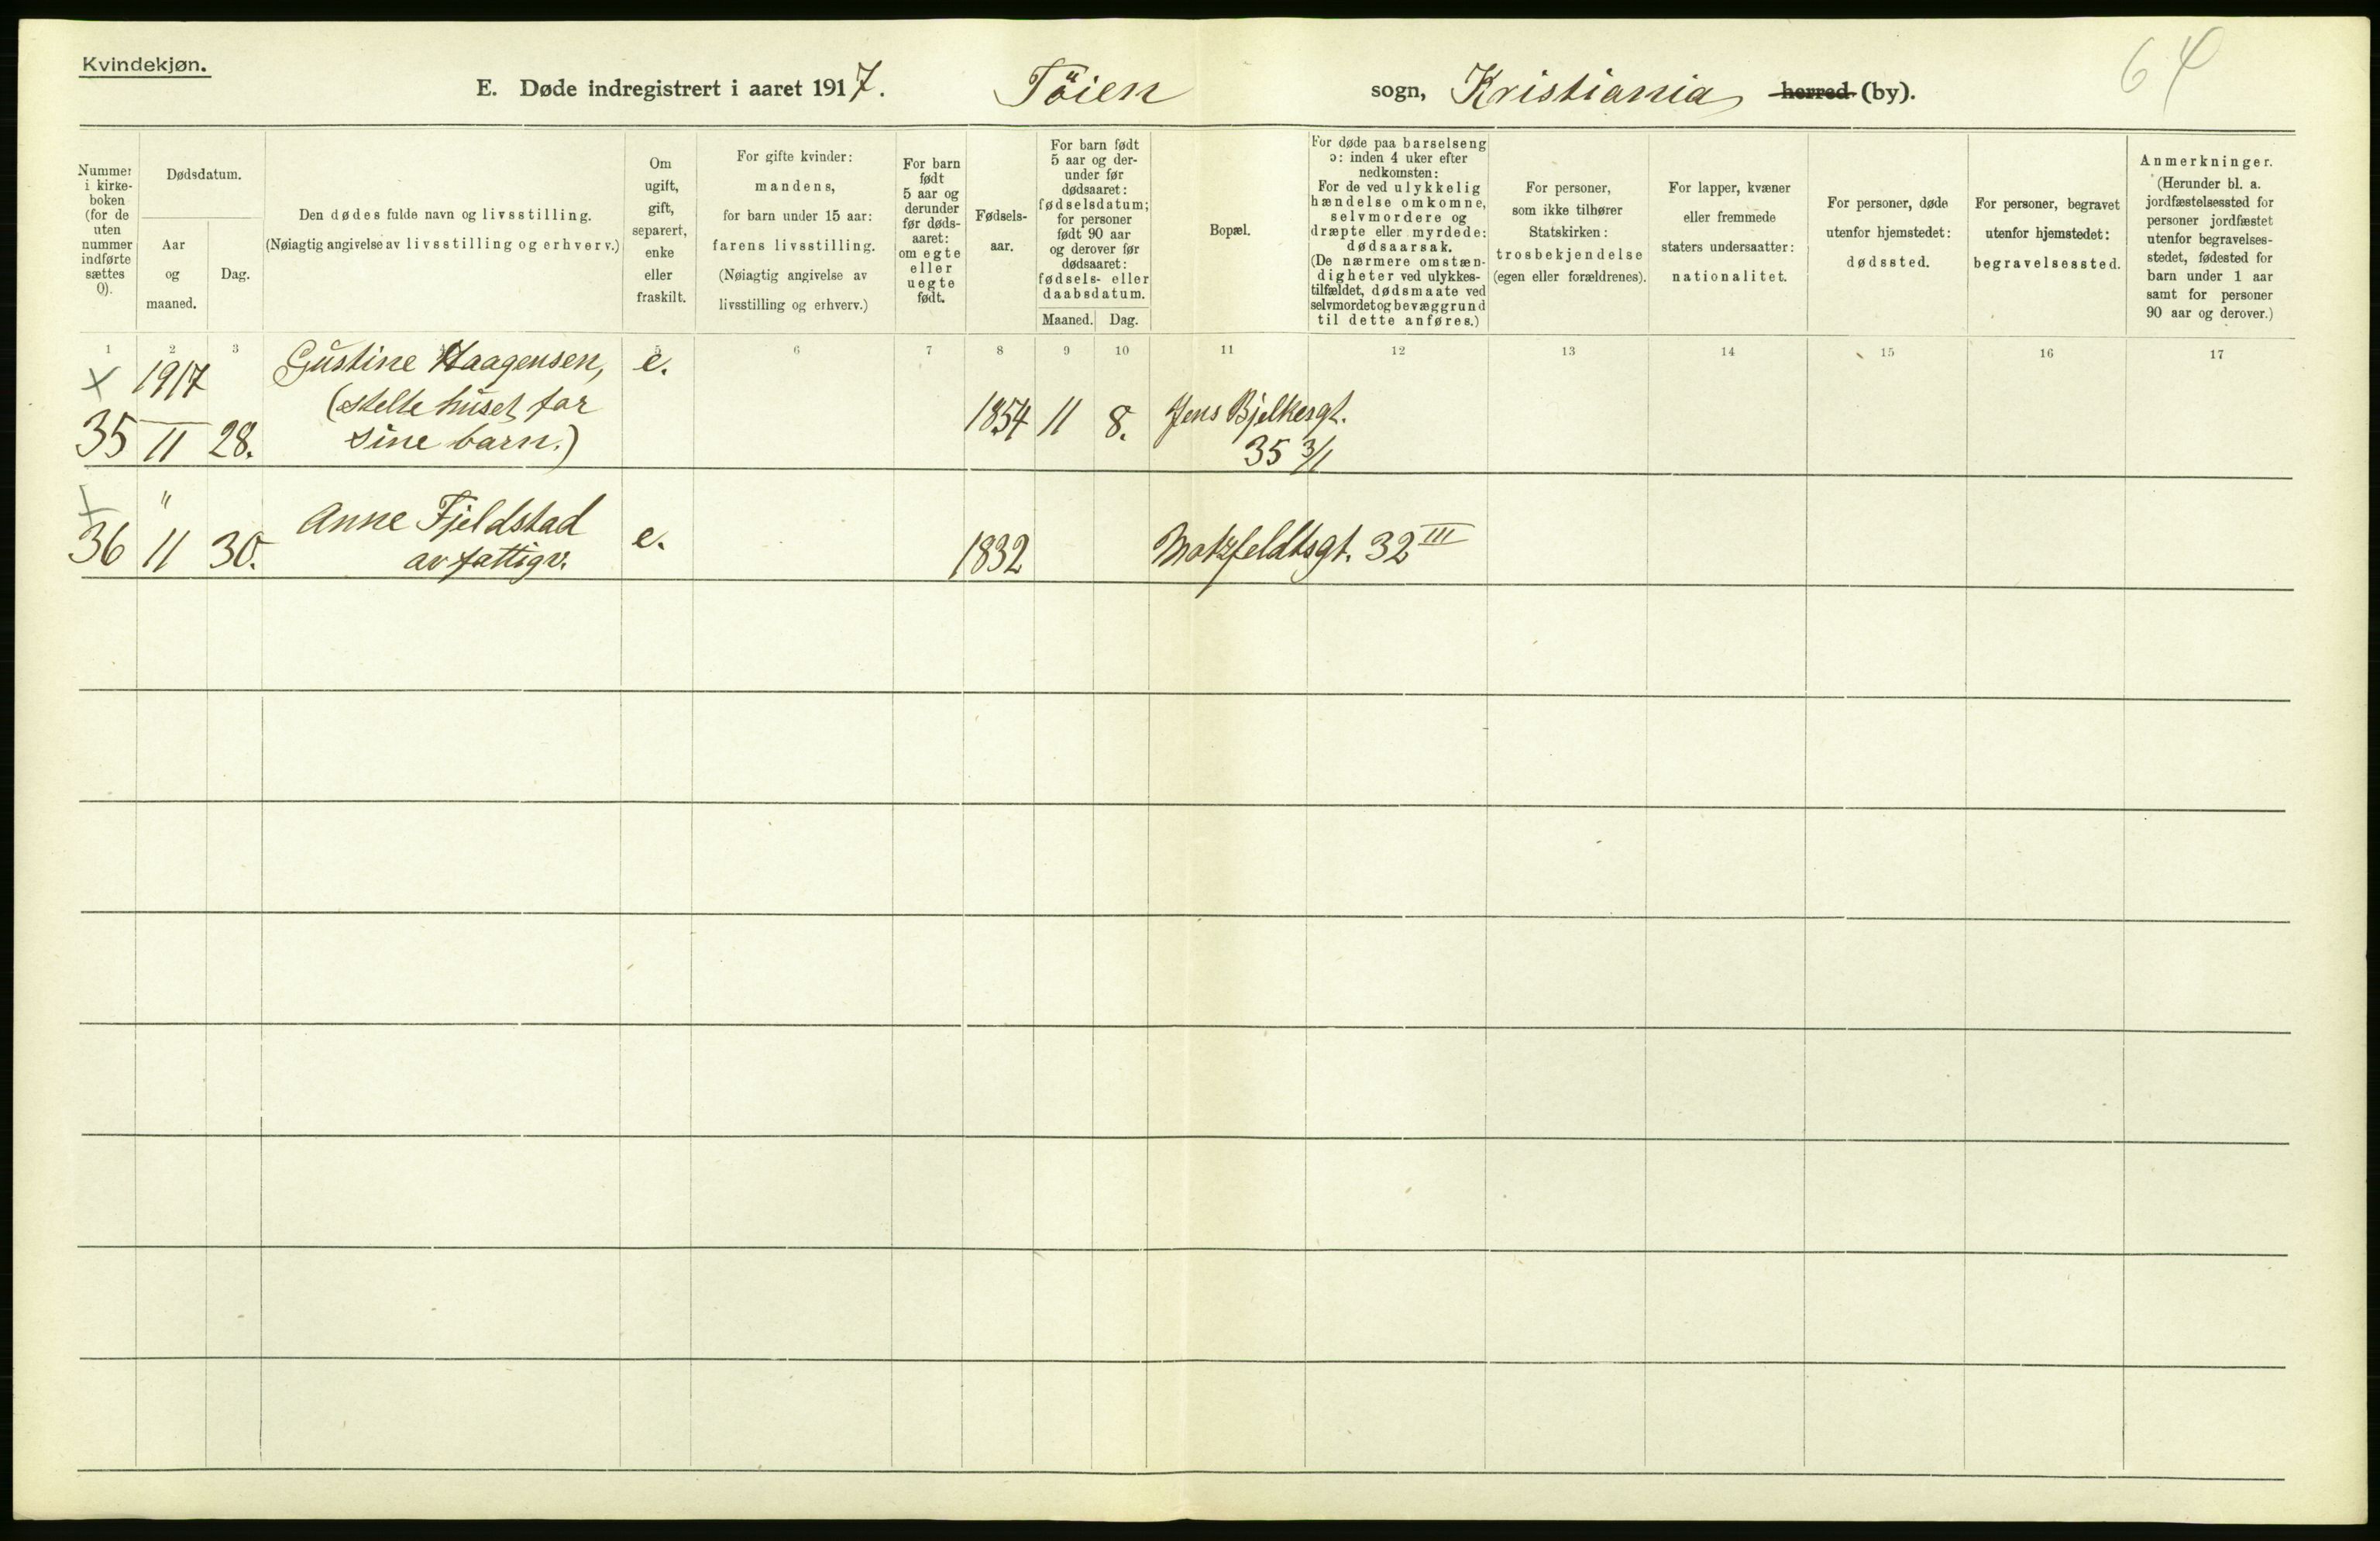 Kvindekjøn.
E. Døde indregistrert i aaret 1917. Töien sogn, Kristiania herred (by).
64
Nummer
i kirke-
boken
(for de
uten
nummer
indførte
sættes
0).
Dødsdatum.
Aar
og
maaned.
Dag.
Den dødes fulde navn og livsstilling.
(Nøiagtig angivelse av livsstilling og erhverv.)
Om
ugift,
gift,
separert,
enke
eller
fraskilt.
For gifte kvinder:
mandens,
for barn under 15 aar:
farens livsstilling.
(Nøiagtig angivelse av
livsstilling og erhverv.)
For barn
født
5 aar og
derunder
før døds-
aaret:
om egte
eller
uegte
født.
Fødsels-
aar.
For barn født
5 aar og der-
under før
dødsaaret:
fødselsdatum;
for personer
født 90 aar
og derover før
dødsaaret:
fødsels- eller
daabsdatum.
Maaned. Dag.
Bopæl.
For døde paa barselseng
ɔ: inden 4 uker efter
nedkomsten:
For de ved ulykkelig
hændelse omkomne,
selvmordere og
dræpte eller myrdede:
dødsaarsak.
(De nærmere omstæn-
digheter ved ulykkes-
tilfældet, dødsmaate ved
selvmordet og bevæggrund
til dette anføres.)
For personer,
som ikke tilhører
Statskirken:
trosbekjendelse
(egen eller forældrenes).
For lapper, kvæner
eller fremmede
staters undersaatter:
nationalitet.
For personer, døde
utenfor hjemstedet:
dødssted.
For personer, begravet
utenfor hjemstedet:
begravelsessted.
Anmerkninger.
(Herunder bl. a.
jordfæstelsessted for
personer jordfæstet
utenfor begravelses-
stedet, fødested for
barn under 1 aar
samt for personer
90 aar og derover.)
1 2 3 4 5 6 7 8 9 10 11 12 13 14 15 16 17
x 1917 Gustine Haagensen, e.
(stelte huset for 1854 11 8. Jens Bjelkesgt.
35 11 28. sine barn.) 35 3/1
x " Anne Fjeldstad
36 11 30. av fattigv. e. 1832 Motzfeldtsgt. 32 III